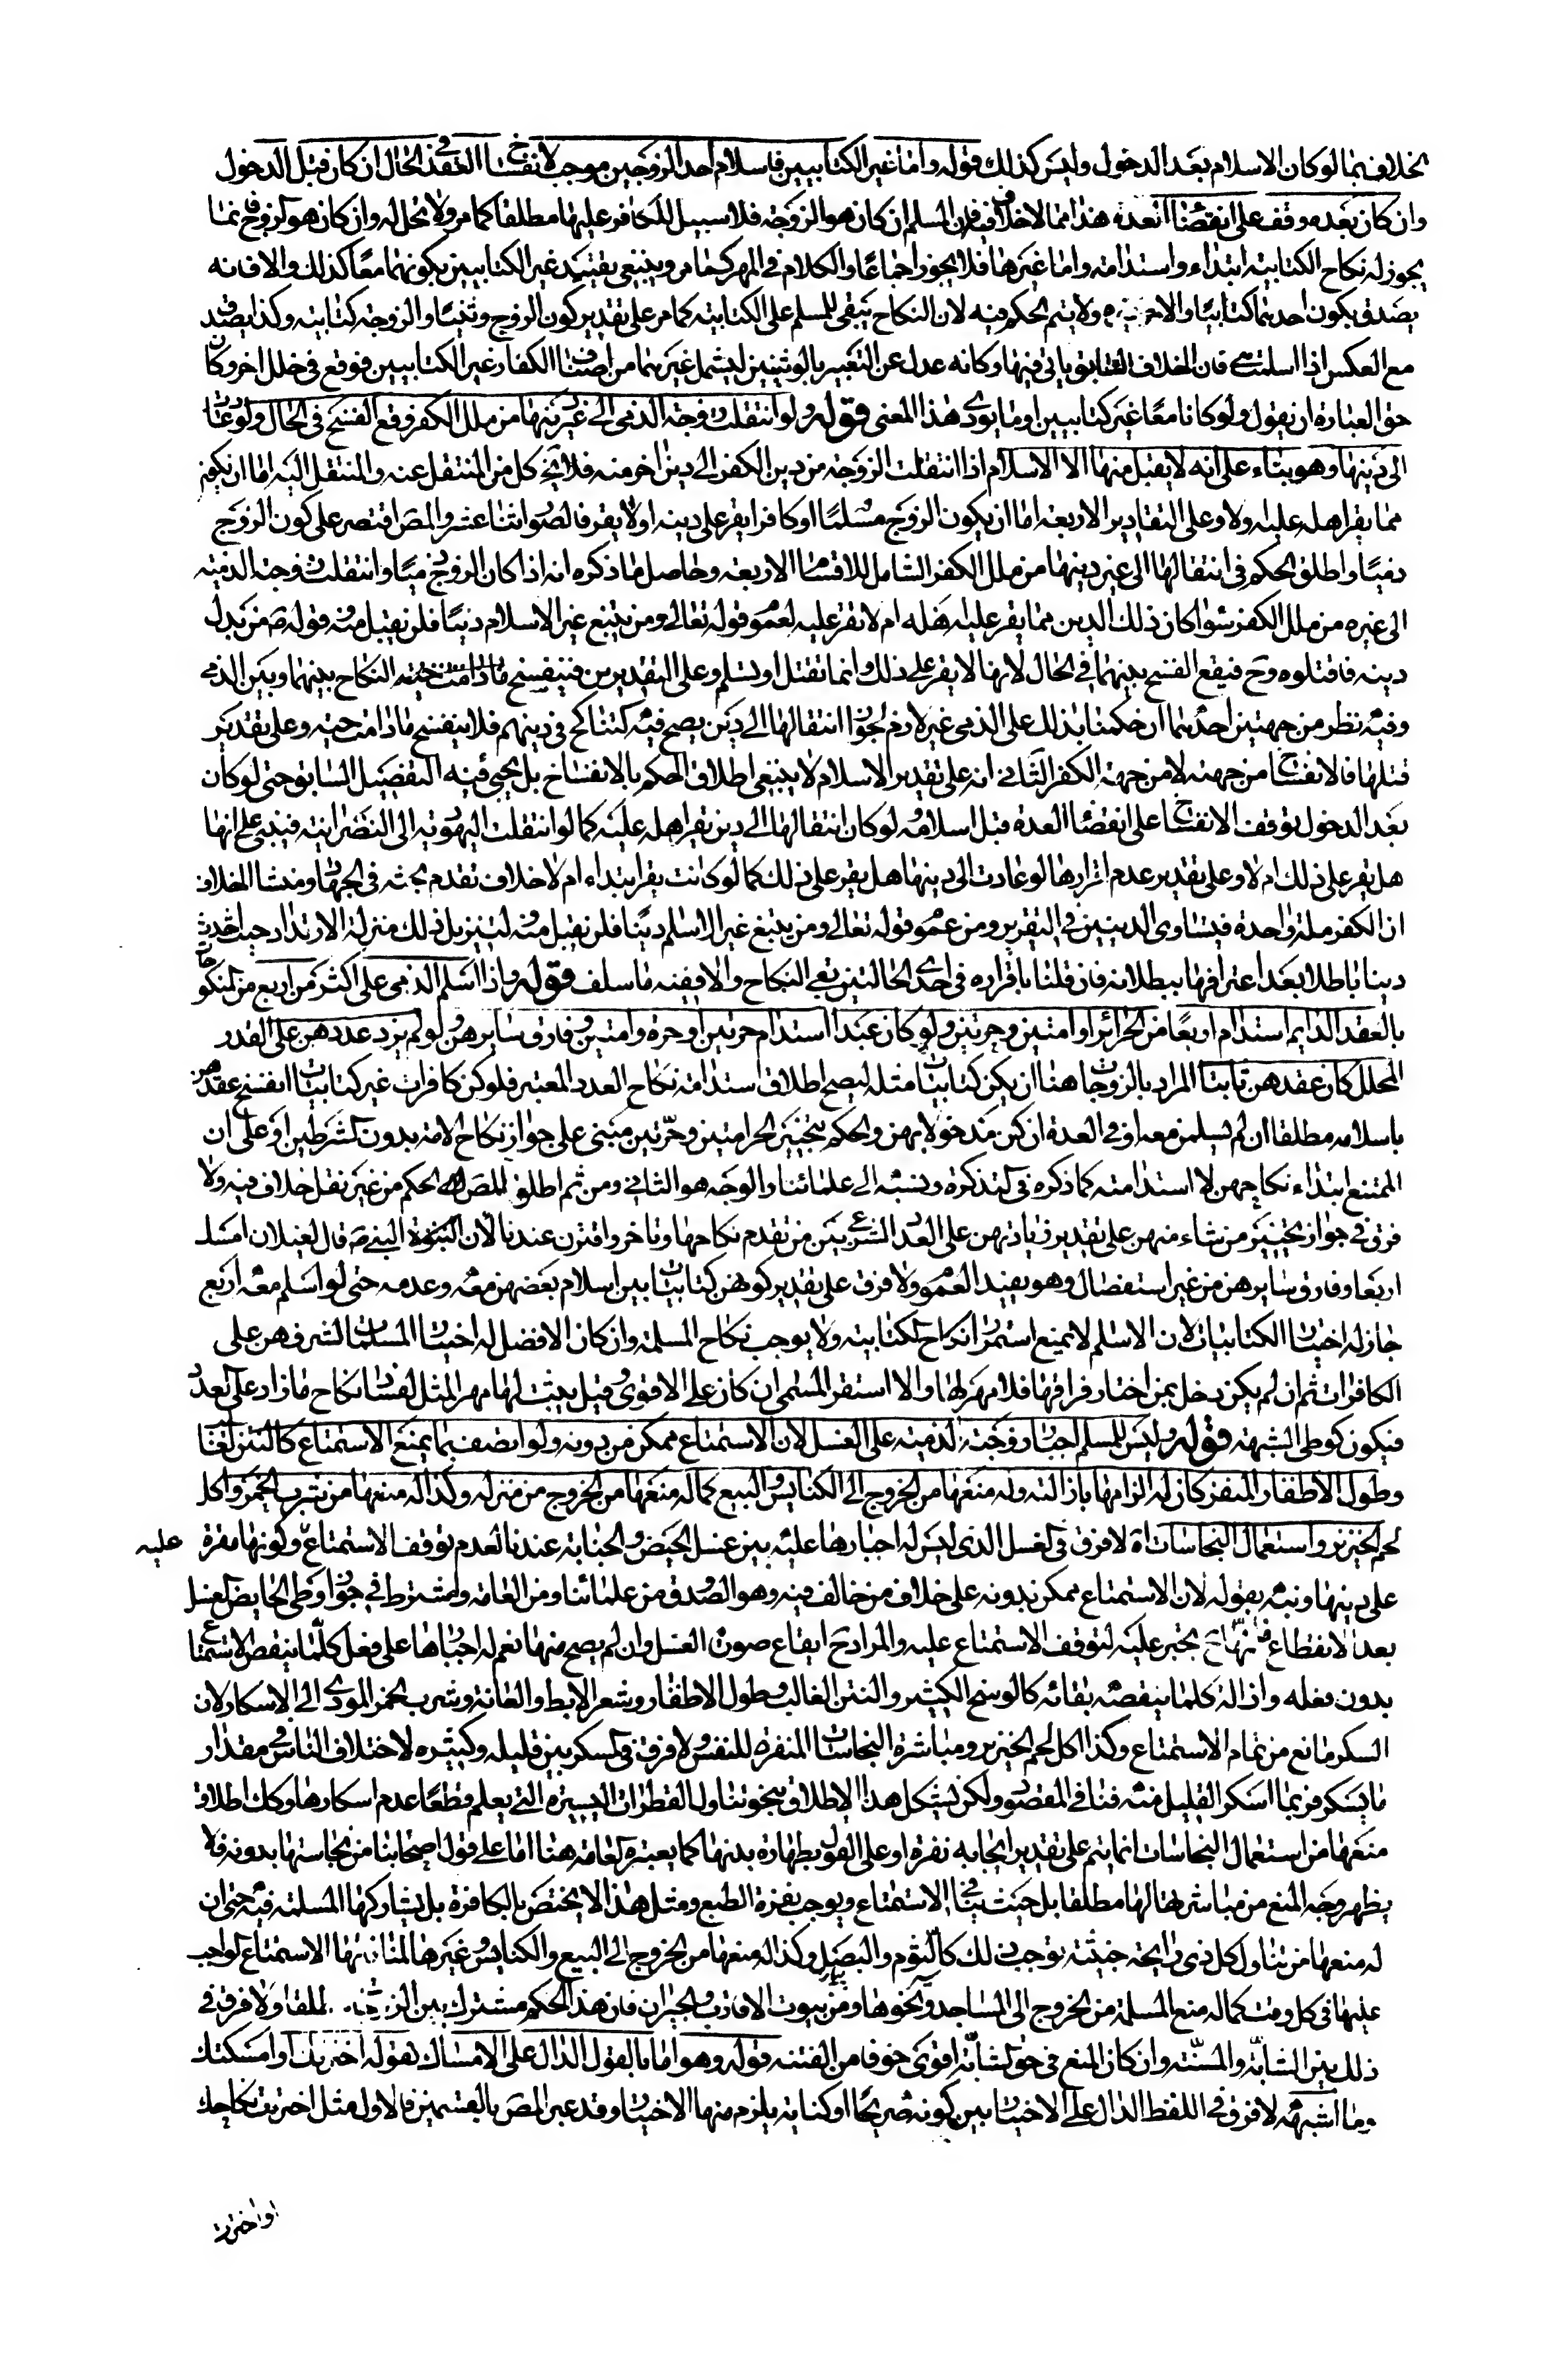 بخلاف ما لو كان الاسلام بعد الدخول وليس كذلك قوله واما غير الكتابيين فاسلام احد الزوجين موجب لانفساخ العقد في الحال ان كان قبل الدخول
وان كان بعده وقف على انقضاء العدة هذا مما لا خلاف فيه فان المسلم ان كان هو الزوجة فلا سبيل للكافر عليها مطلقا كما مر ولا تحل له وان كان هو الزوج فانما
يجوز له نكاح الكتابية ابتداء واستدامة واما غيرها فلا يجوز اجماعا والكلام في المهر كما مر وينبغي تقييد غير الكتابيين بكونهما معا كذلك والا فانه
يصدق بكون احدهما كتابيا والاخر ولا يتم الحكم فيه لان النكاح يبقى للمسلم على الكتابية كما مر على تقدير كون الزوج وثنيا والزوجة كتابية وكذا يصدق
مع العكس اذا اسلمت فان الخلاف السابق ياتي فيها وكانه عدل عن التعبير بالوثنيين ليشمل غيرهما من اصناف الكفار غير الكتابيين فوقع في خلل اخر وكان
حق العبارة ان يقول ولو كانا معا غير كتابيين او ما يودى هذا المعنى قوله ولو انتقلت زوجة الذمي الى غير دينها من ملل الكفر وقع الفسخ في الحال ولو عادت
الى دينها وهو بناء على انه لا يقبل منها الا الاسلام اذا انتقلت الزوجة من دين الكفر الى دين اخر منه فلا يخ كل من المنتقل عنه والمنتقل اليه اما ان يكون
مما يقر اهله عليه ولا وعلى التقادير الاربعة اما ان يكون الزوج مسلما او كافرا يقر على دينه او لا يقر فالصور اثنا عشر والمص اقتصر على كون الزوج
ذميا واطلق الحكم في انتقالها الى غير دينها من ملل الكفر الشامل للاقسام الاربعة وحاصل ما ذكره انه اذا كان الزوج ذميا وانتقلت زوجته الذمية
الى غيره من ملل الكفر سواء كان ذلك الدين مما يقر عليه اهله ام لا تقر عليه لعموم قوله تعالى ومن يبتغ غير الاسلام دينا فلن يقبل منه قوله ص من بدل
دينه فاقتلوه وح فيقع الفسخ بينهما في الحال لانها لا يقر على ذلك وانما تقتل او تسلم وعلى التقديرين فينفسخ النكاح بينهما وبين الذمي
وفيه نظر من جهتين احدهما ان حكمنا بذلك على الذمي غير لازم لجواز انتقالها الى دين يصح فيه التناكح في دينهم فلا ينفسخ ما دامت حية وعلى تقدير
قتلها فالانفساخ من جهته لا من جهة الكفر الثاني انه على تقدير الاسلام لا ينبغي اطلاق الحكم بالانفساخ بل يجئ فيه التفصيل السابق حتى لو كان
بعد الدخول توقف الانفساخ على انقضاء العدة قبل اسلامه لو كان انتقالها الى دين يقر اهله عليه كما لو انتقلت اليهودية الى النصرانية فيبنى على انها
هل يقر على ذلك ام لا وعلى تقدير عدم اقرارها لو عادت الى دينها هل يقر على ذلك كما لو كانت يقر ابتداء ام لا خلاف تقدم بحثه في الجهاد ومنشا الخلاف
ان الكفر ملة واحدة فيتساوى الدينين في التقرير ومن عموم قوله تعالى ومن يبتغ غير الاسلام دينا فلن يقبل منه لتنزيل ذلك منزلة الارتداد حيث احدث
دينا باطلا بعد اعترافها ببطلانه فان قلنا باقراره في احدى الحالتين بقى النكاح والا ففيه ما سلف قوله واذا اسلم الذمي على اكثر من اربع من المنكوحات
بالعقد الدايم استدام اربعا من الحراير او امتين وحرتين ولو كان عبدا استدام حرتين او حرة وامتين وفارق سايرهن ولو لم يزد عددهن على القدر
المحلل كان عقدهن ثابتا المراد بالزوجات هنا ان يكن كتابيات مثله ليصح اطلاق استدامة نكاح العدد المعتبر فلو كن كافرات غير كتابيات انفسخ عقدهن
باسلامه مطلقا ان لم يسلمن معه او في العدة ان كن مدخولا بهن والحكم بتخيير الحر امتين وحرتين مبنى على جواز نكاح الامة بدون الشرطين او على ان
الممتنع ابتداء نكاحهن لا استدامته كما ذكره في التذكرة ونسبه الى علمائنا والوجه هو الثاني ومن ثم اطلق المص الحكم من غير نقل خلاف فيه ولا
فرق في جواز تخيير من شاء منهن على تقدير زيادتهن على العدد الشرعي بين من تقدم نكاحها وتاخر واقترن عندنا لان النبي ص قال لغيلان امسك
اربعا وفارق سايرهن من غير استفصال وهو يفيد العموم ولا فرق على تقدير كونهن كتابيات بين اسلام بعضهن معه وعدمه حتى لو اسلم معه اربع
جاز له اختيار الكتابيات لان الاسلام لا يمنع استمرار نكاح الكتابية ولا يوجب نكاح المسلمة وان كان الافضل له اختيار المسلمات لشرفهن على
الكافرات ثم ان لم يكن دخل بمن اختار فراقها فلا مهر لها والا استقر المسمى ان كان على الاقوى وقيل يثبت لها مهر المثل لفساد نكاح ما زاد على العدد
فيكون كوطى الشبهة قوله وليس للمسلم اجبار زوجته الذمية على الغسل لان الاستمتاع ممكن من دونه ولو اتصفت بما يمنع الاستمتاع كالنتن الغالب
وطول الاظفار المنفر كان له الزامها بازالته وله منعها من الخروج الى الكنايس والبيع كما له منعها من الخروج من منزله وكذا له منعها من شرب الخمر واكل
لحم الخنزير واستعمال النجاسات اه لا فرق في الغسل الذي ليس له اجبارها عليه بين غسل الحيض والجنابة عندنا لعدم توقف الاستمتاع وكونها مقرة عليه
على دينها ونبه بقوله لان الاستمتاع ممكن بدونه على خلاف من خالف فيه وهو الصدوق من علمائنا ومن العامة واشترط في جواز وطى الحايض الغسل
بعد الانقطاع يجبر عليه لتوقف الاستمتاع عليه والمراد ح ايقاع صورة الغسل وان لم يصح منها نعم له اجبارها على فعل كلما ينقص الاستمتاع
بدون فعله وازالة كلما ينقصه بقائه كالوسخ الكثير والنتن الغالب وطول الاظفار وشعر الابط والعانة وشرب الخمر المودى الى الاسكار لان
السكر مانع من تمام الاستمتاع وكذا اكل لحم الخنزير ومباشرة النجاسات المنفرة للنفوس لا فرق في المسكر بين قليله وكثيره لاختلاف الناس في مقدار
ما يسكر فربما اسكر القليل منه فنافى المقصود ولكن يشكل هذا الاطلاق بنحو تناول القطرات اليسيرة التي يعلم قطعا عدم اسكارها وكك اطلاق
منعها من استعمال النجاسات انما يتم على تقدير ايجابه نفرة او على القول بطهارة بدنها كما يعتبره العامة هنا اما على قول اصحابنا من نجاستها بدونه فلا
يظهر وجه المنع من مباشرتها لها مطلقا بل حيث ينافي الاستمتاع ويوجب نفرة الطبع ومثل هذا لا يختص بالكافرة بل يشاركها المسلمة فيه حتى ان
له منعها من تناول كل ذي رايحة خبيثة توجب ذلك كالثوم والبصل وكذا له منعها من الخروج الى البيع والكنايس وغيرها لمنافاتها الاستمتاع الواجب
عليها في كل وقت كما له منع المسلمة من الخروج الى المساجد ونحوها ومن بيوت الاقارب والجيران فان هذا الحكم مشترك بين مطلقا ولا فرق في
ذلك بين الشابة والمسنة وان كان المنع في حق الشابة اقوى خوفا من الفتنة قوله وهو اما بالقول الدال على الامساك لقوله اخترتك او امسكتك
وما اشبهه لا فرق في اللفظ الدال على الاختيار بين كونه صريحا او كناية يلزم منها الاختيار وقد عبر المص بالقسمين فالاول مثل اخترت نكاحك
او اخترت